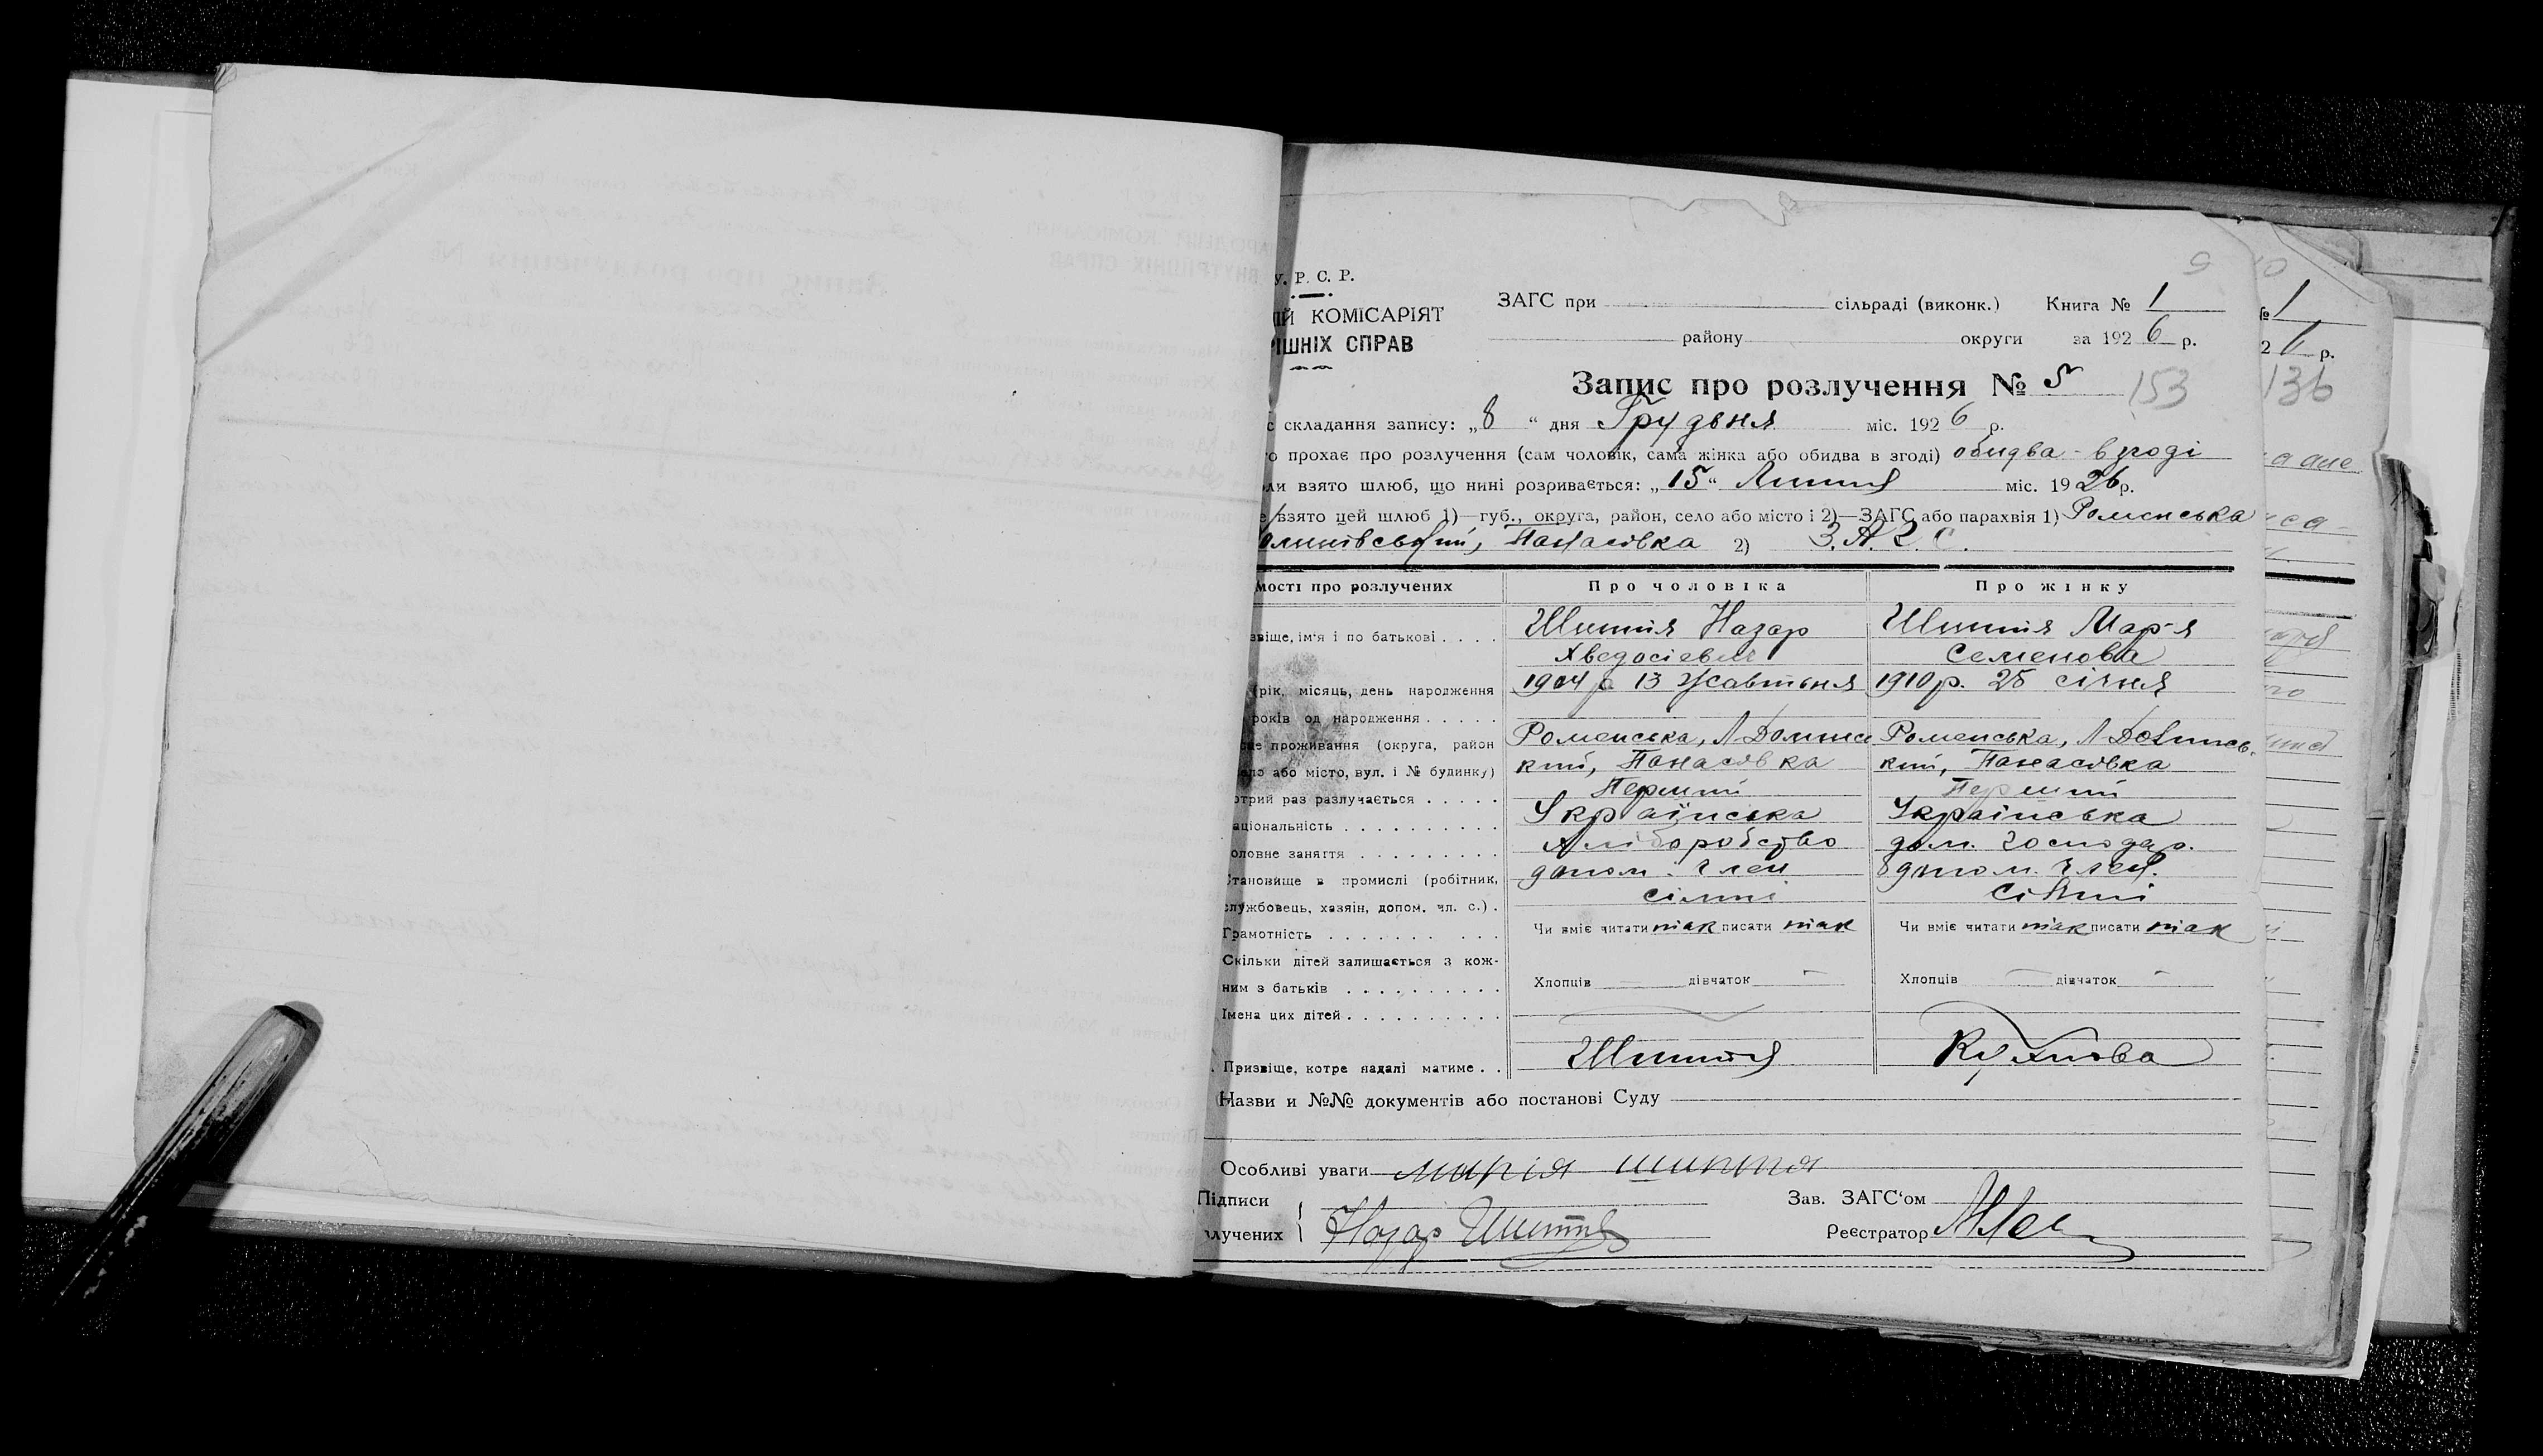 У. Р. С. Р.
ІЙ КОМІСАРІЯТ
РІШНІХ СПРАВ
ЗАГС при сільраді (виконк.) Книга № 1
району округи за 1926 р.
Запис про розлучення № 5 153
складання запису: „8“ дня Грудьня міс. 1926 р.
прохає про розлучення (сам чоловік, сама жінка або обидва в згоді) обидва - в згоді
ли взято шлюб, що нині розривається: „15“ Липня міс. 1926 р.
взято цей шлюб 1)—губ., округа, район, село або місто і 2)—ЗАГС або парахвія 1) Роменська
Панасівка 2) З. А. Г. С.
мості про розлучених Про чоловіка Про жінку
звіще, ім'я і по батькові . . . . Шиття Назар Шиття Мар-я
Хведосієвич Семенова
(рік, місяць, день народження 1904 р 13 Жовтьня 1910 р. 25 січня
років од народження . . . . .
проживання (округа, район Роменська, Роменська,
або місто, вул. і № будинку) кий, Панасівка кий, Панасівка
отрий раз разлучається . . . . . Перший Перший
аціональність . . . . . . . . . . Українська Українська
оловне заняття . . . . . . . . . Хліборобство дом. господар.
тановище в промислі (робітник, допом. член допом. член.
лужбовець, хазяін, допом. чл. с.) . сімні сімні
Грамотність . . . . . . . . . . Чи вміє читати так писати так Чи вміє читати так писати так
Скільки дітей залишається з кож-
ним з батьків . . . . . . . . . . Хлопців — дівчаток — Хлопців — дівчаток —
Імена цих дітей . . . . . . . . . .
Призвіще, котре надалі матиме . . Шиття
Назви и №№ документів або постанові Суду
Особливі уваги марія шиття
Підписи Зав. ЗАГС'ом
лучених { Назар Шиття Реєстратор
№ 1
2 6 р.
136